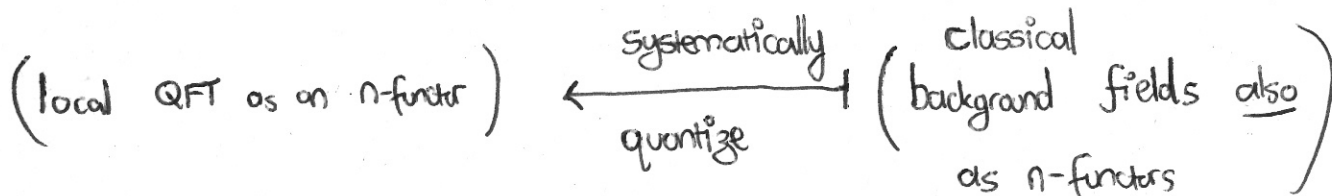 (local QFT as an n-functor)
systematically
quantize
(classical
background fields also
as n-functors)